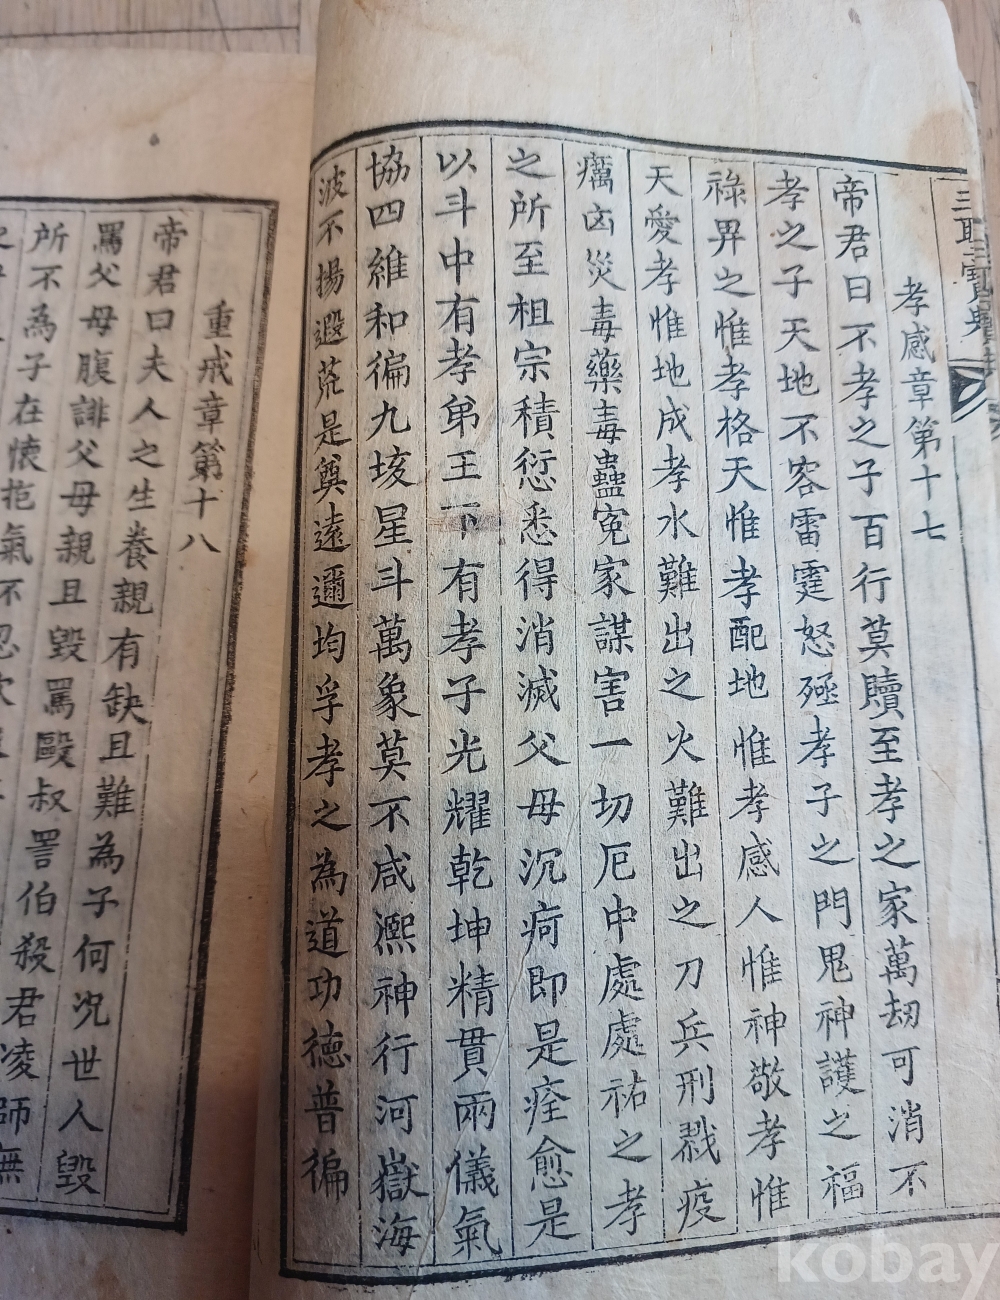 三聖寶典
孝感章第十七
帝君曰不孝之子百行莫贖至孝之家萬劫可消不
孝之子天地不容雷霆怒殛孝子之門鬼神護之福
祿畀之惟孝格天惟孝配地惟孝感人惟神敬孝惟
天愛孝惟地成孝水難出之火難出之刀兵刑戮疫
癘凶災毒藥毒蠱冤家謀害一切厄中處處祐之孝
之所至祖宗積愆悉得消滅父母沉疴即是痊愈是
以斗中有孝弟王下有孝子光耀乾坤精貫兩儀氣
協四維和徧九垓星斗萬象莫不咸凞神行河嶽海
波不揚遐荒是奠遠邇均孚孝之為道功徳普徧
重戒章第十八
帝君曰夫人之生養親有缺且難為子何況世人毀
罵父母腹誹父母親且毀罵毆叔詈伯殺君凌師無
所不為子在懷抱氣不忍吹
kobay